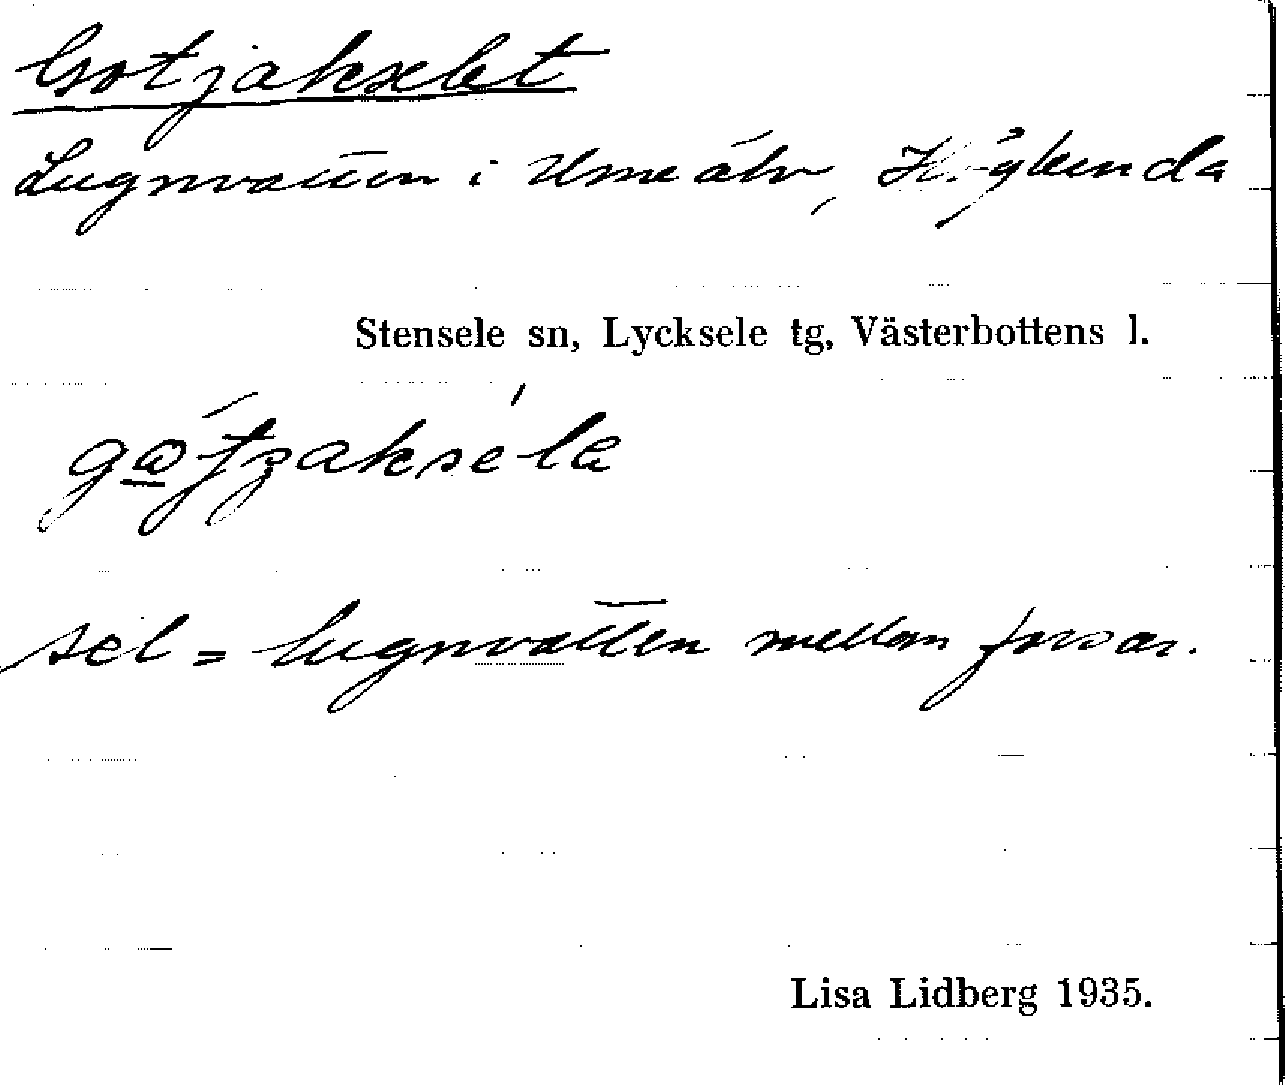 Gotjakselet
Lugnvatten i Ume älv, Högbunda
Stensele sn, Lycksele tg, Västerbottens l.
sel = lugnvatten mellan forsar.
Lisa Lidberg 1935.